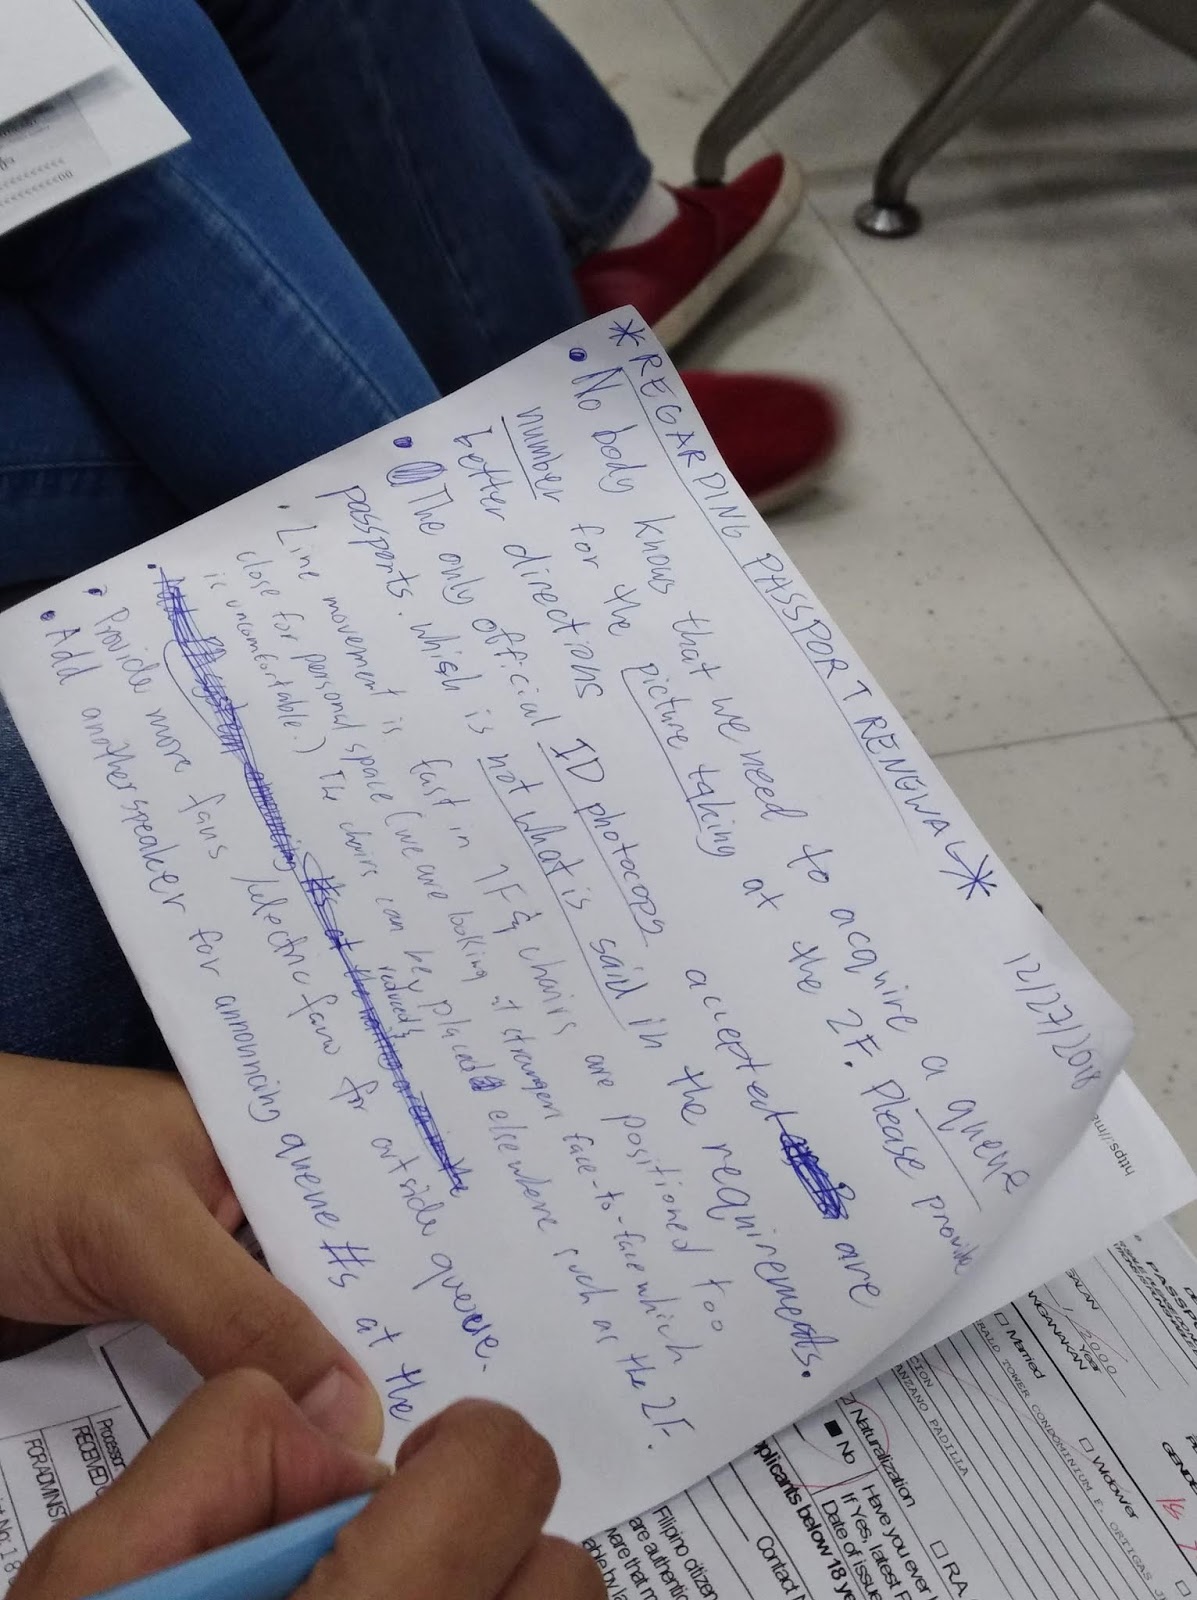 12/27/2018
*REGARDING PASSPORT RENEWAL*
• No body knows that we need to acquire a queue
number for the picture taking at the 2F. Please provide
better directions
• The only official ID photocopy accepted are
passports. whish is not what is said in the requirements.
• Line movement is fast in 1F & chairs are positioned too
close for personal space (we are looking at strangers face-to-face which
is uncomfortable.) The chairs can be placed elsewhere such as the 2F.
reduced &
• Provide more fans/electric fans for outside queue.
• Add another speaker for announcing queue #s at the
https://ma
PASSPOR
GENDE
/ 2000
Year
NGANAKAN
Married
Widower
TOWER CONDOMINIUM E. ORTIGAS J
ANZANO PADILLA
CION
Naturalization
No
Have you ever
If Yes, latest
Date of issue
RA
applicants below 18 ye
Contact
Filipino citizen
are authentic
ware that m
able by la
Processor
RECEIVED
FOR ADMINIST